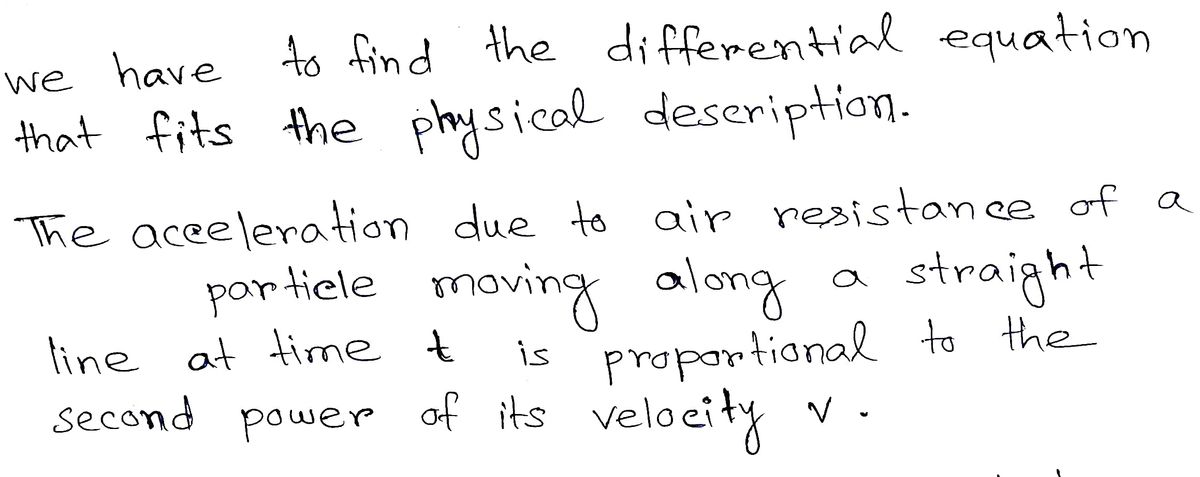 we have to find the differential equation
that fits the physical description.
The acceleration due to air resistance of a
particle moving along a straight
line at time t is proportional to the
second power of its velocity v.